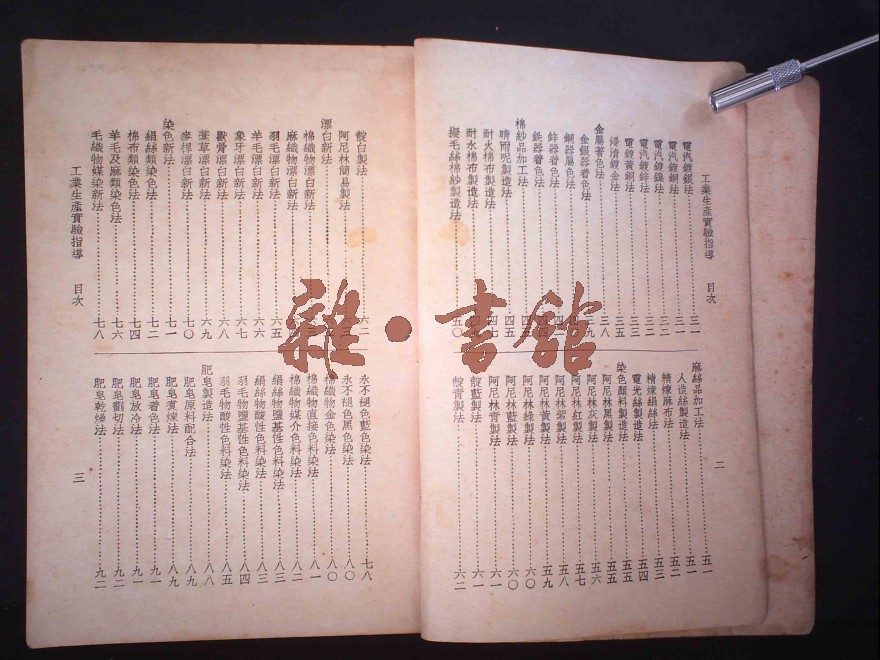 工業生產實驗指導 目次 二
電汽鍍銀法……三一
電汽鍍銅法……三一
電汽鍍鎳法……三二
電汽鍍鋅法……三三
電鍍黃銅法……三三
浸漬鍍金法……三五
金屬著色法……三八
金銀器着色法……三九
銅器屬色法……
鋅器着色法……
鐵器着色法……
棉紗品加工法……四五
晴雨呢製造法……四五
耐火棉布製造法……四七
耐水棉布製造法……
擬毛絲棉紗製造法……五〇
麻絲品加工法……五一
人造絲製造法……五一
精煉麻布法……五二
精煉絹絲法……五四
電光絲製造法……五五
染色顏料製造法……五五
阿尼林黑製法……五六
阿尼林灰製法……五七
阿尼林紅製法……五八
阿尼林紫製法……五八
阿尼林黃製法……五九
阿尼林綠製法……六〇
阿尼林藍製法……六〇
阿尼林青製法……六一
靛藍製法……六一
靛青製法……六二
靛白製法……六二
阿尼林簡易製法……
漂白新法……
棉織物漂白新法……
麻織物漂白新法……
羽毛漂白新法……六五
羊毛漂白新法……六六
象牙漂白新法……六七
獸骨漂白新法……六八
藁草漂白新法……六九
麥桿漂白新法……七〇
染色新法……七一
絹絲類染色法……七二
棉布類染色法……七四
羊毛及麻類染色法……七六
毛織物媒染新法……七八
永不褪色藍色染法……七八
永不褪色黑色染法……八〇
棉織物金色染法……八〇
棉織物直接色料染法……八一
棉織物媒介色料染法……八二
絹絲物鹽基性色料染法……八三
絹絲物酸性色料染法……八三
羽毛物鹽基性色料染法……八四
羽毛物酸性色料染法……八五
肥皂製造法……八八
肥皂原料配合法……八九
肥皂煮煉法……八九
肥皂着色法……九一
肥皂放冷法……九一
肥皂劃切法……九二
肥皂乾燥法……九二
工業生產實驗指導 目次 三
雜·書館